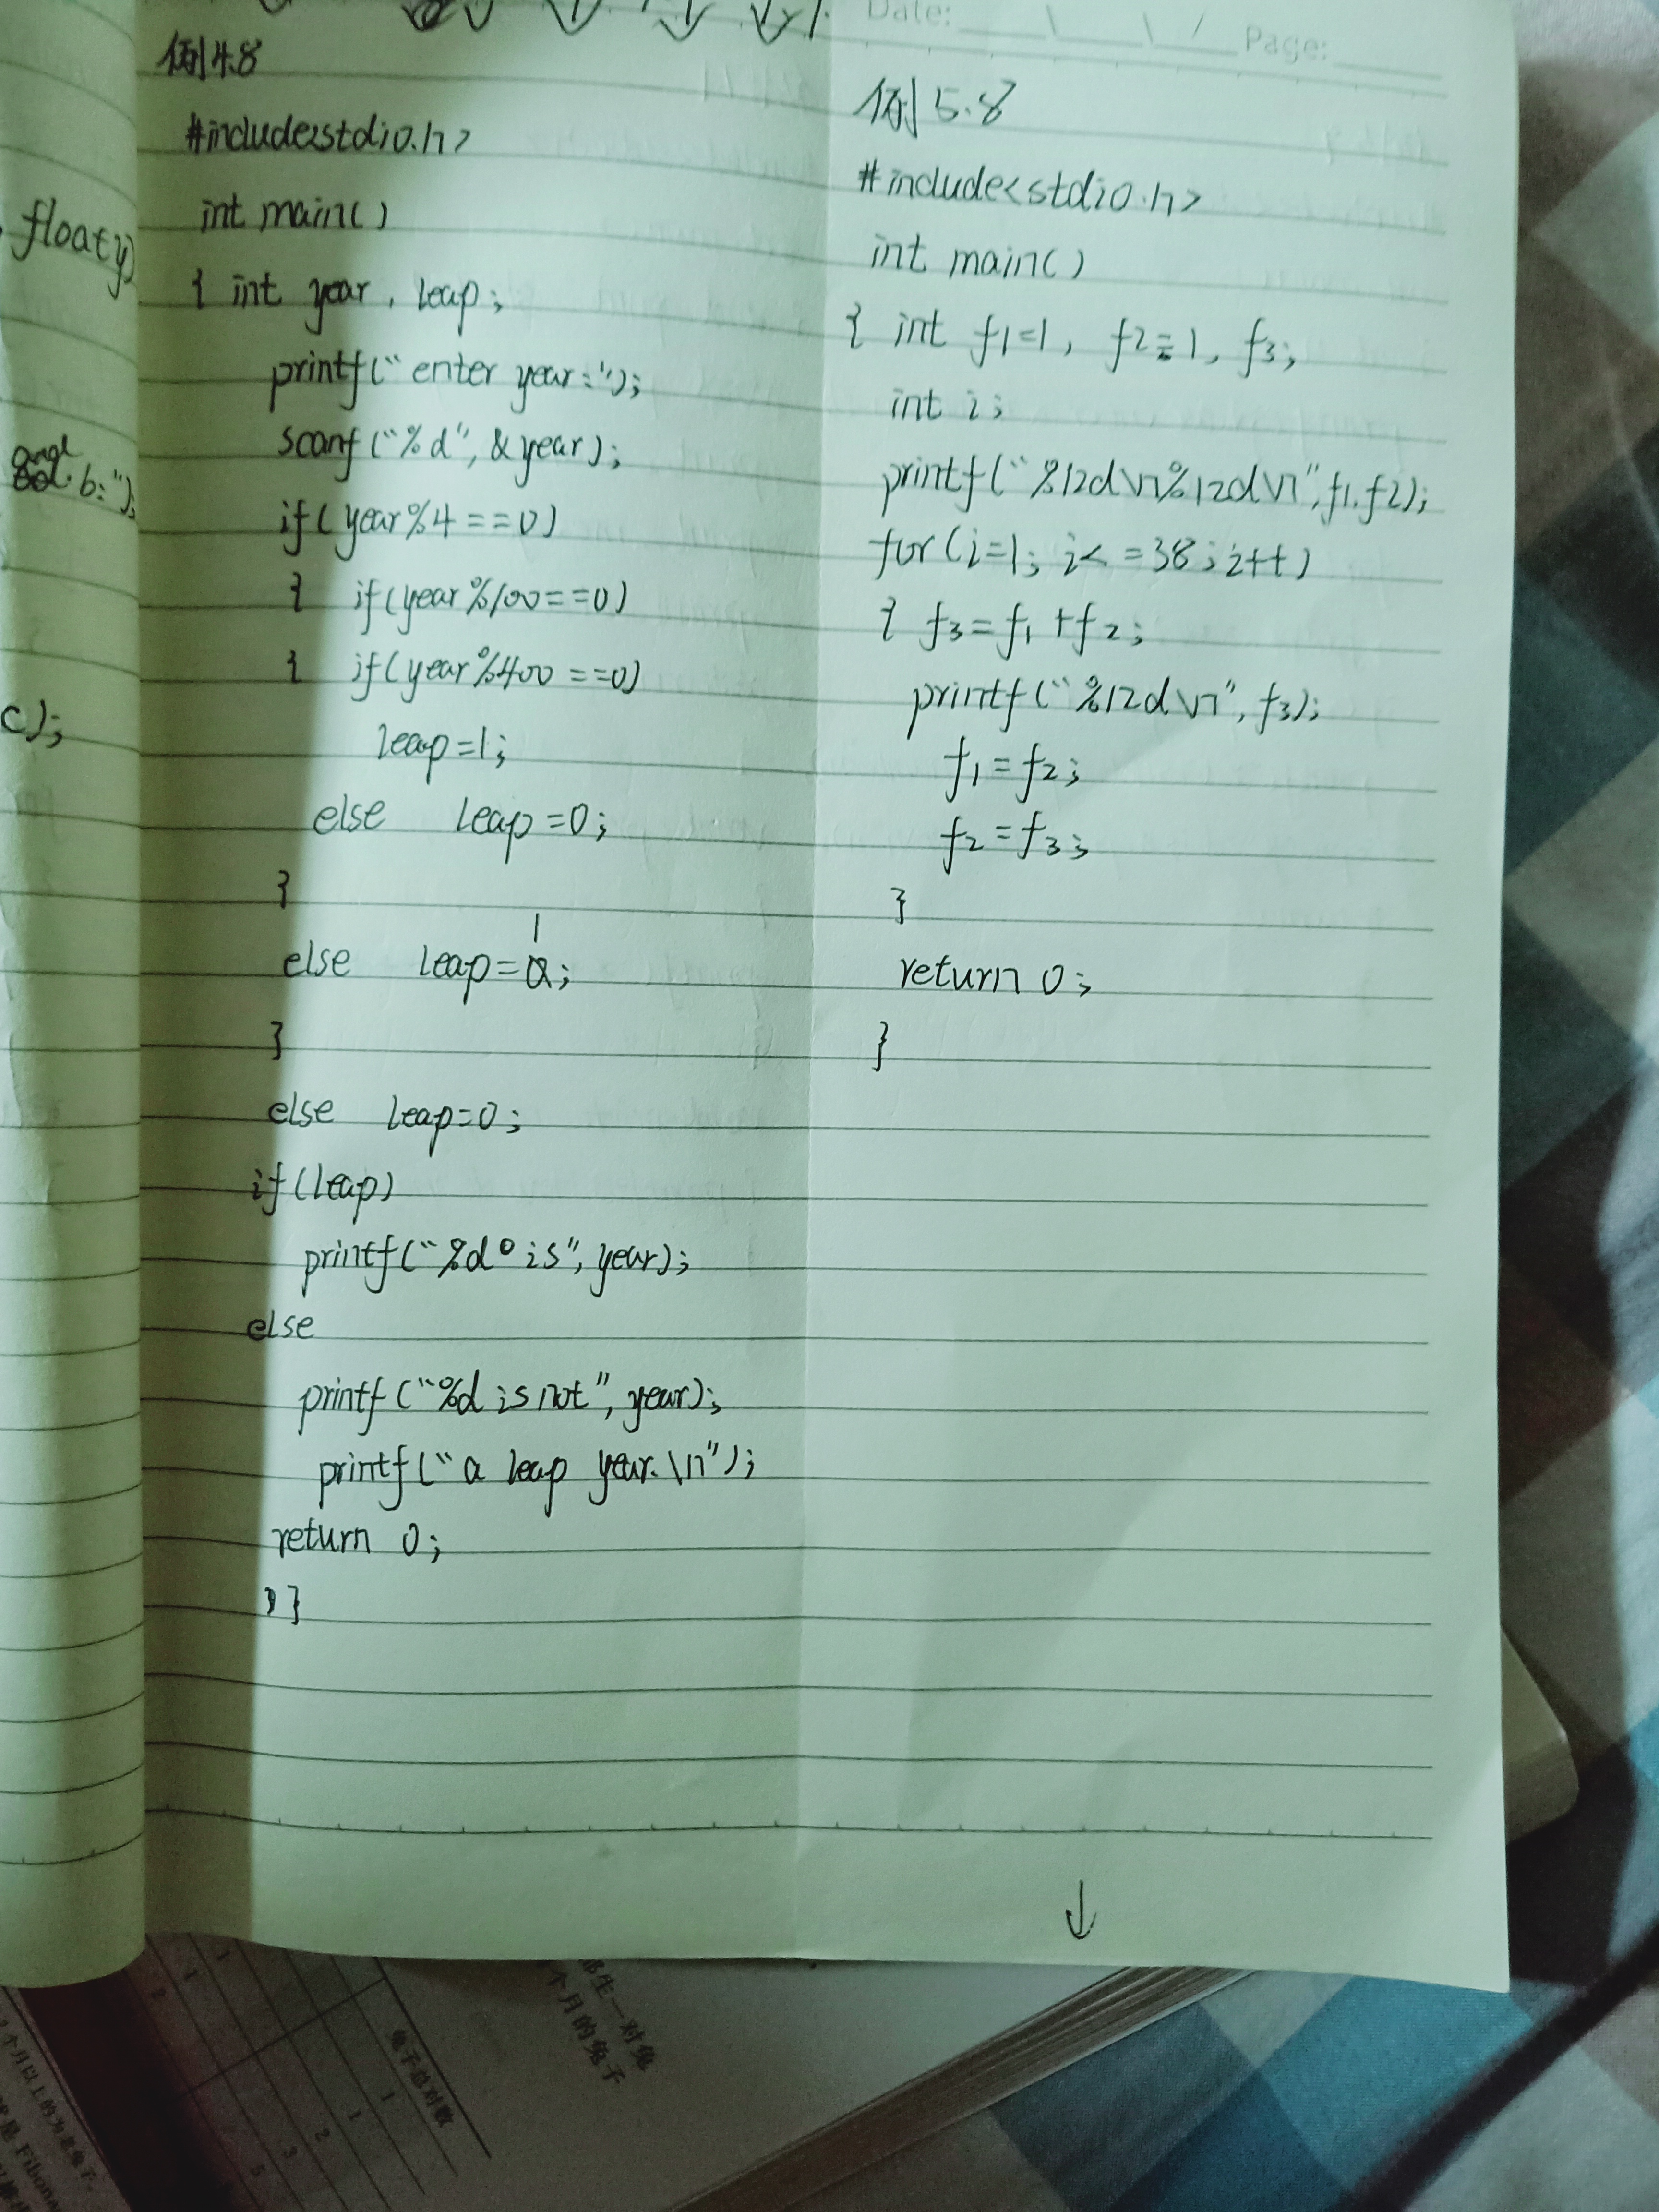 float y)
angl
b:");
c);
例4.8
#include<stdio.h>
int main()
{ int year, leap;
printf("enter year:");
scanf("%d", &year);
if(year%4==0)
{ if(year%100==0)
{ if(year%400==0)
leap=1;
else leap=0;
}
else leap=1;
}
else leap=0;
if(leap)
printf("%d is", year);
else
printf("%d is not", year);
printf("a leap year.\n");
return 0;
}
Date: Page:
例5.8
#include<stdio.h>
int main()
{ int f1=1, f2=1, f3;
int i;
printf("%12d\n%12d\n",f1,f2);
for(i=1; i<=38; i++)
{ f3=f1+f2;
printf("%12d\n", f3);
f1=f2;
f2=f3;
}
return 0;
}
↓
部生一对兔
个月的兔子
兔子总对数
1
1
2
3
5
个月以上的为老兔子。